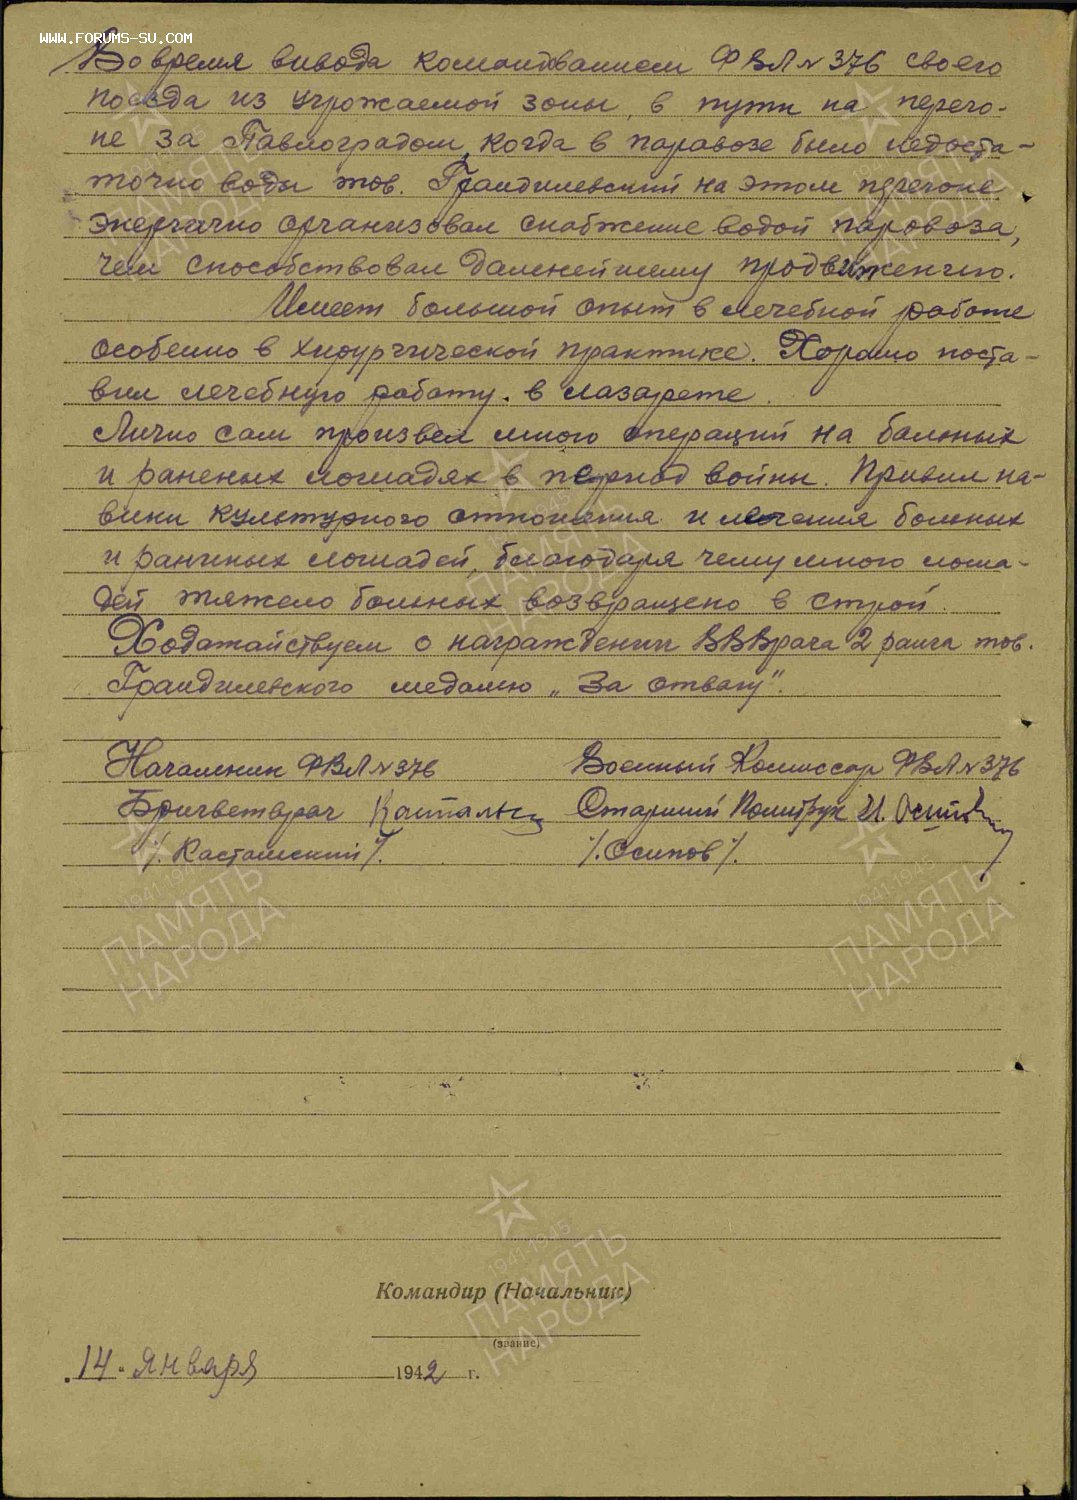 WWW.FORUMS-SU.COM
Во время вывода командованием ФВЛ № 376 своего
поезда из угрожаемой зоны, в пути на перего-
не за Павлоградом, когда в паравозе было недоста-
точно воды тов. Грандилевский на этом перегоне
энергично организовал снабжение водой паровоза,
чем способствовал дальнейшему продвижению.
Имеет большой опыт в лечебной работе
особенно в хирургической практике. Хорошо поста-
вил лечебную работу. в лазарете.
Лично сам произвел много операций на больных
и раненых лошадях в период войны. Привил на-
выки культурного отношения и лечения больных
и раненых лошадей, благодаря чему много лоша-
дей тяжело больных возвращено в строй.
Ходатайствуем о награждении ВВВрача 2 ранга тов.
Грандилевского медалью „За отвагу".
Начальник ФВЛ № 376 Военный Комиссар ФВЛ № 376
Бригветврач Старший Политрук И. Осипов
/. /. /. Осипов /.
1941-1945
ПАМЯТЬ
НАРОДА
Командир (Начальник)
(звание)
„14" января 1942 г.